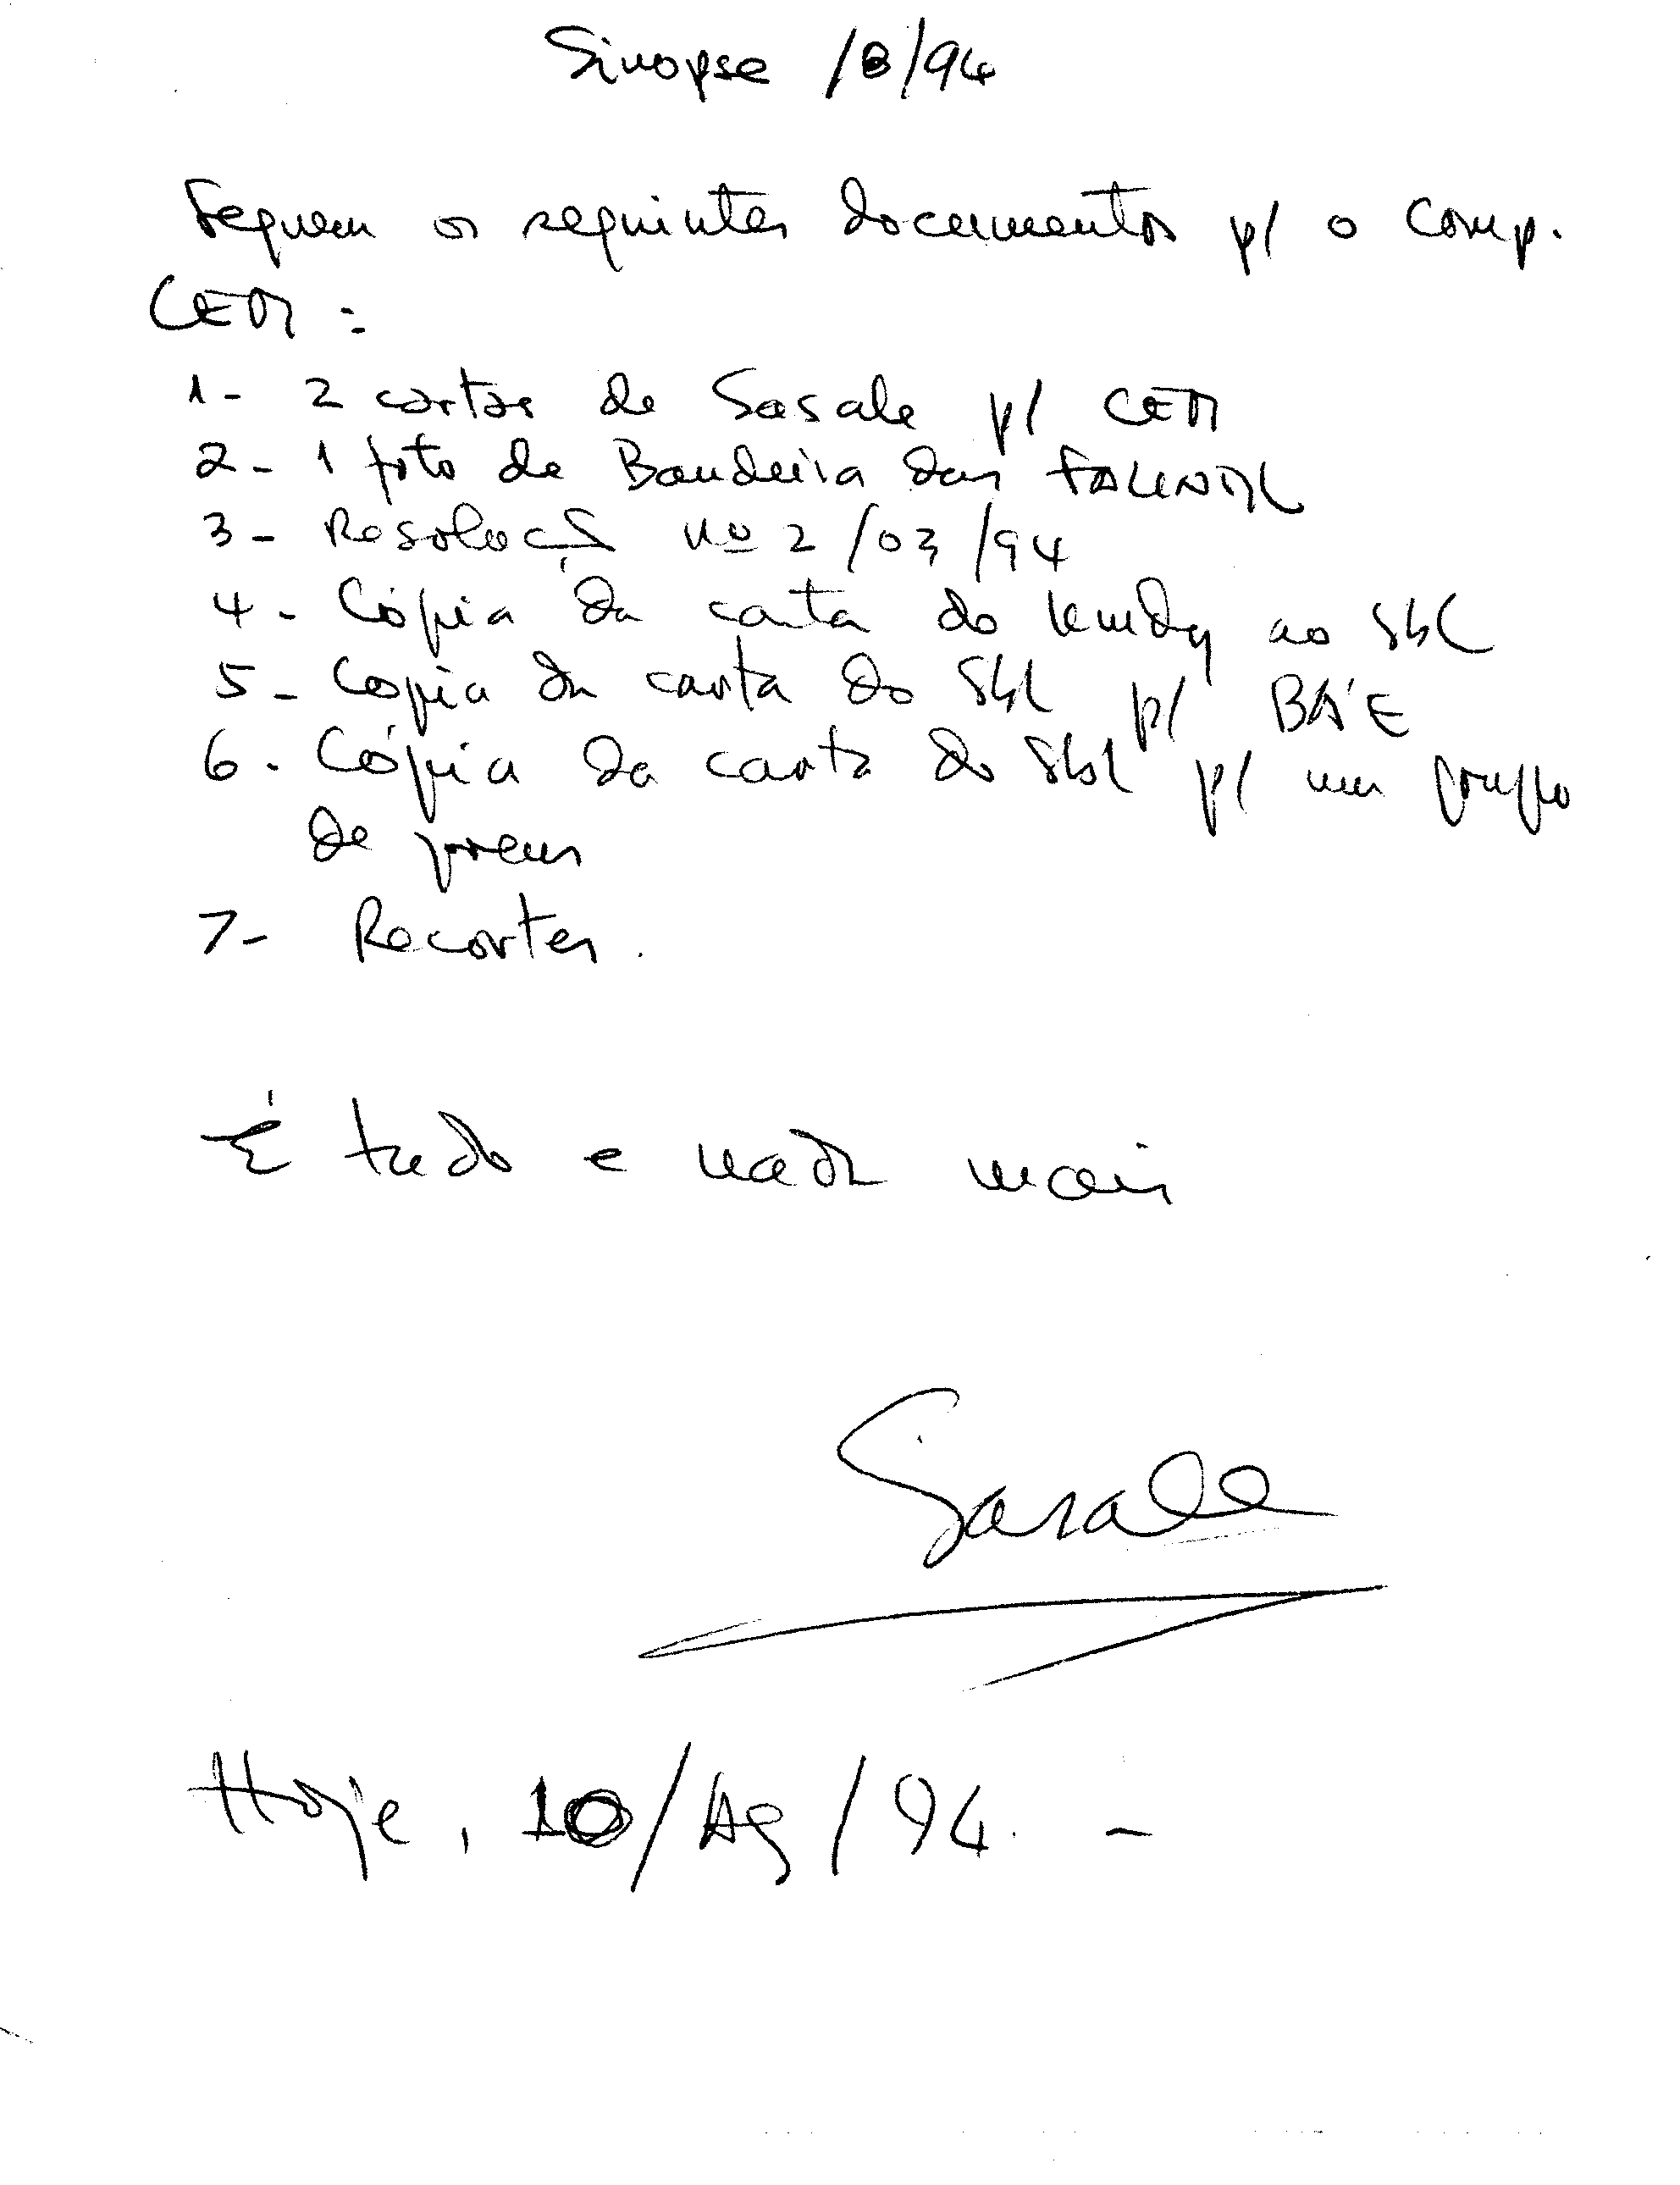 Sinopse /8/94
Seguem os seguintes documentos p/ o Comp.
CEM :
1- 2 cartas de Sasale p/ CEM
2- 1 foto de Bandeira das FALINTIL
3- Resolução nº 2/03/94
4- Cópia da carta do ao
5- Copia da carta do p/ BA'E
6. Cópia da carta do p/ um grupo
de jovens
7- Recortes.
É tudo e nada mais
Sasale
Hoje, 10/Ag/94. -